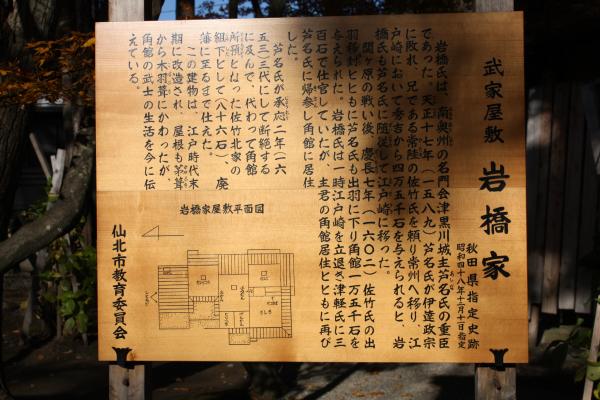 武家屋敷 岩橋家
秋田県指定史跡
昭和四十八年十二月十一日指定
岩橋氏は、南奥州の名門会津黒川城主芦名氏の重臣
であった。天正十七年（一五八九）芦名氏が伊達政宗
に敗れ、兄である常陸の佐竹氏を頼り常州へ移り、江
戸崎において秀吉から四万五千石を与えられると、岩
橋氏も芦名氏に随従して江戸崎に移った。
関ヶ原の戦い後、慶長七年（一六〇二）佐竹氏の出
羽移封とともに芦名氏も出羽に下り角館一万五千石を
与えられた。岩橋氏は、一時江戸崎を立退き津軽氏に三
百石で仕官していたが、主君の角館居住とともに再び
芦名氏に帰参し角館に居住
した。
芦名氏が承応二年（一六
五三）三代にして断絶する
に及んで、代わって角館
所預となった佐竹北家の
組下として（八十六石）、廃
藩に至るまで仕えた。
この建物は、江戸時代末
期に改造され、屋根も茅葺
から木羽葺にかわったが、
角館の武士の生活を今に伝
えている。
岩橋家屋敷平面図
仙北市教育委員会